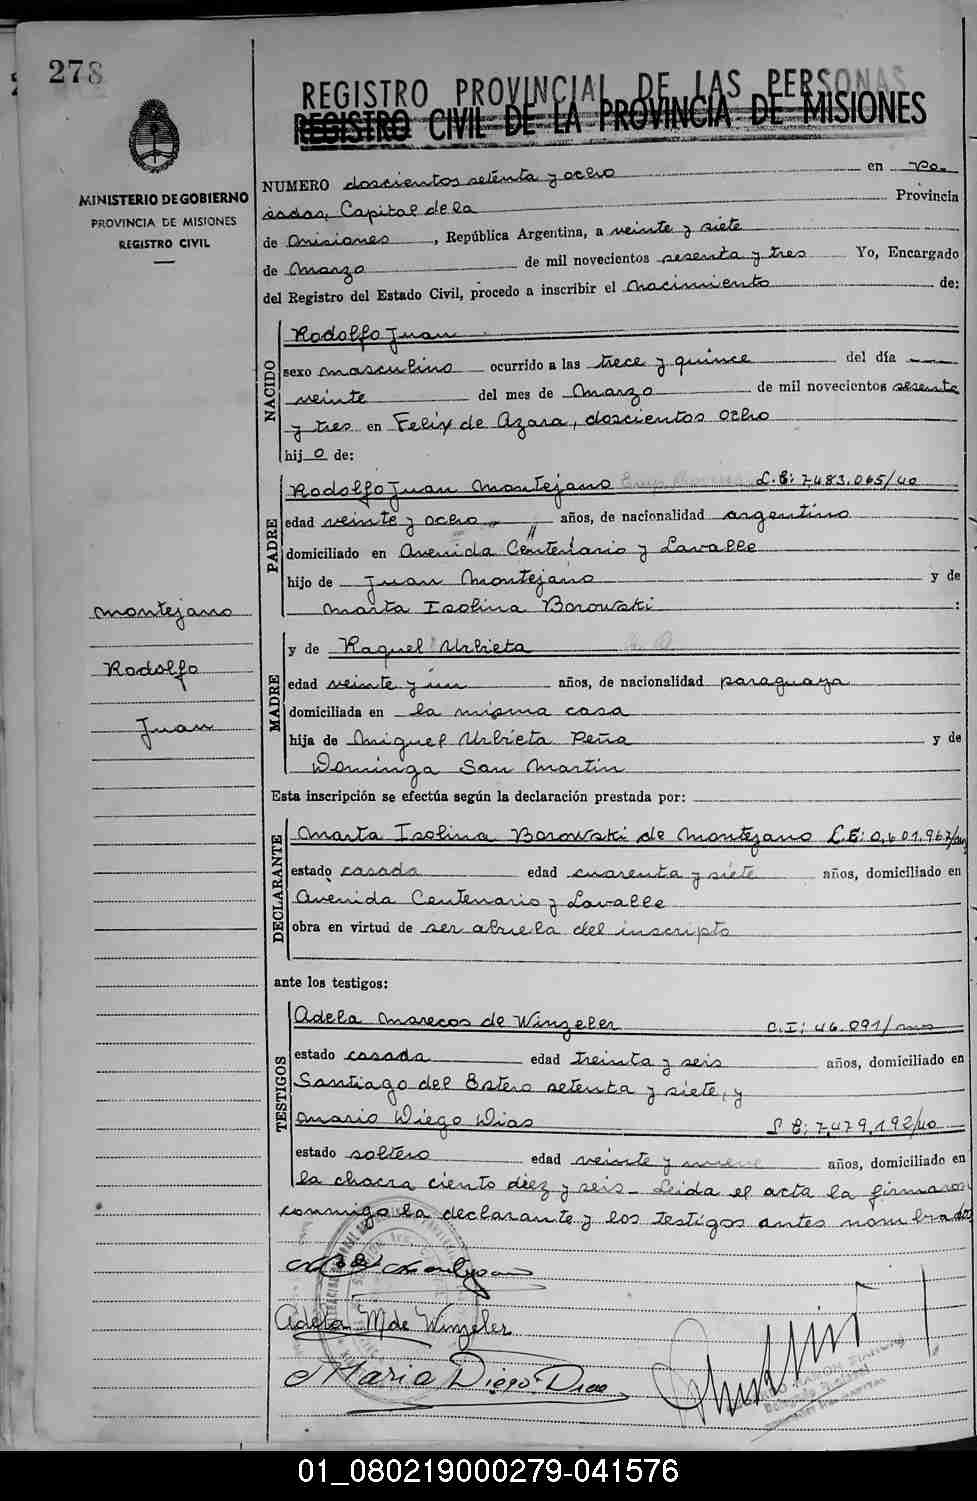 278
REGISTRO PROVINCIAL DE LAS PERSONAS
REGISTRO CIVIL DE LA PROVINCIA DE MISIONES
MINISTERIO DE GOBIERNO
PROVINCIA DE MISIONES
REGISTRO CIVIL
NUMERO doscientos setenta y ocho en Po-
sadas, Capital de la Provincia
de Misiones, República Argentina, a veinte y siete
de Marzo de mil novecientos sesenta y tres Yo, Encargado
del Registro del Estado Civil, procedo a inscribir el nacimiento de:
NACIDO
Rodolfo Juan
sexo masculino ocurrido a las trece y quince del día
veinte del mes de Marzo de mil novecientos sesenta
y tres en Felix de Azara, doscientos ocho
hijo de:
PADRE
Rodolfo Juan Montejano L.E: 7483.065/40
edad veinte y ocho años, de nacionalidad argentino
domiciliado en Avenida Centenario y Lavalle
hijo de Juan Montejano y de
Marta Isolina Borowski :
Montejano
Rodolfo
Juan
MADRE
y de Raquel Urbieta
edad veinte y un años, de nacionalidad paraguaya
domiciliada en la misma casa
hija de Miguel Urbieta Peña y de
Dominga San Martin
Esta inscripción se efectúa según la declaración prestada por:
DECLARANTE
Marta Isolina Borowski de Montejano L.E: 0,601.967/
estado casada edad cuarenta y siete años, domiciliado en
Avenida Centenario y Lavalle
obra en virtud de ser abuela del inscripto
ante los testigos:
TESTIGOS
Adela Marecos de Winzeler C.I: 46.091/mnes
estado casada edad treinta y seis años, domiciliado en
Santiago del Estero setenta y siete, y
Mario Diego Dias L E: 7,479,192/40
estado soltero edad veinte y nueve años, domiciliado en
la chacra ciento diez y seis - Leida el acta la firmaron
conmigo la declarante y los testigos antes nombrados
Adela M de Winzeler
Mario Diego Dias
01_080219000279-041576